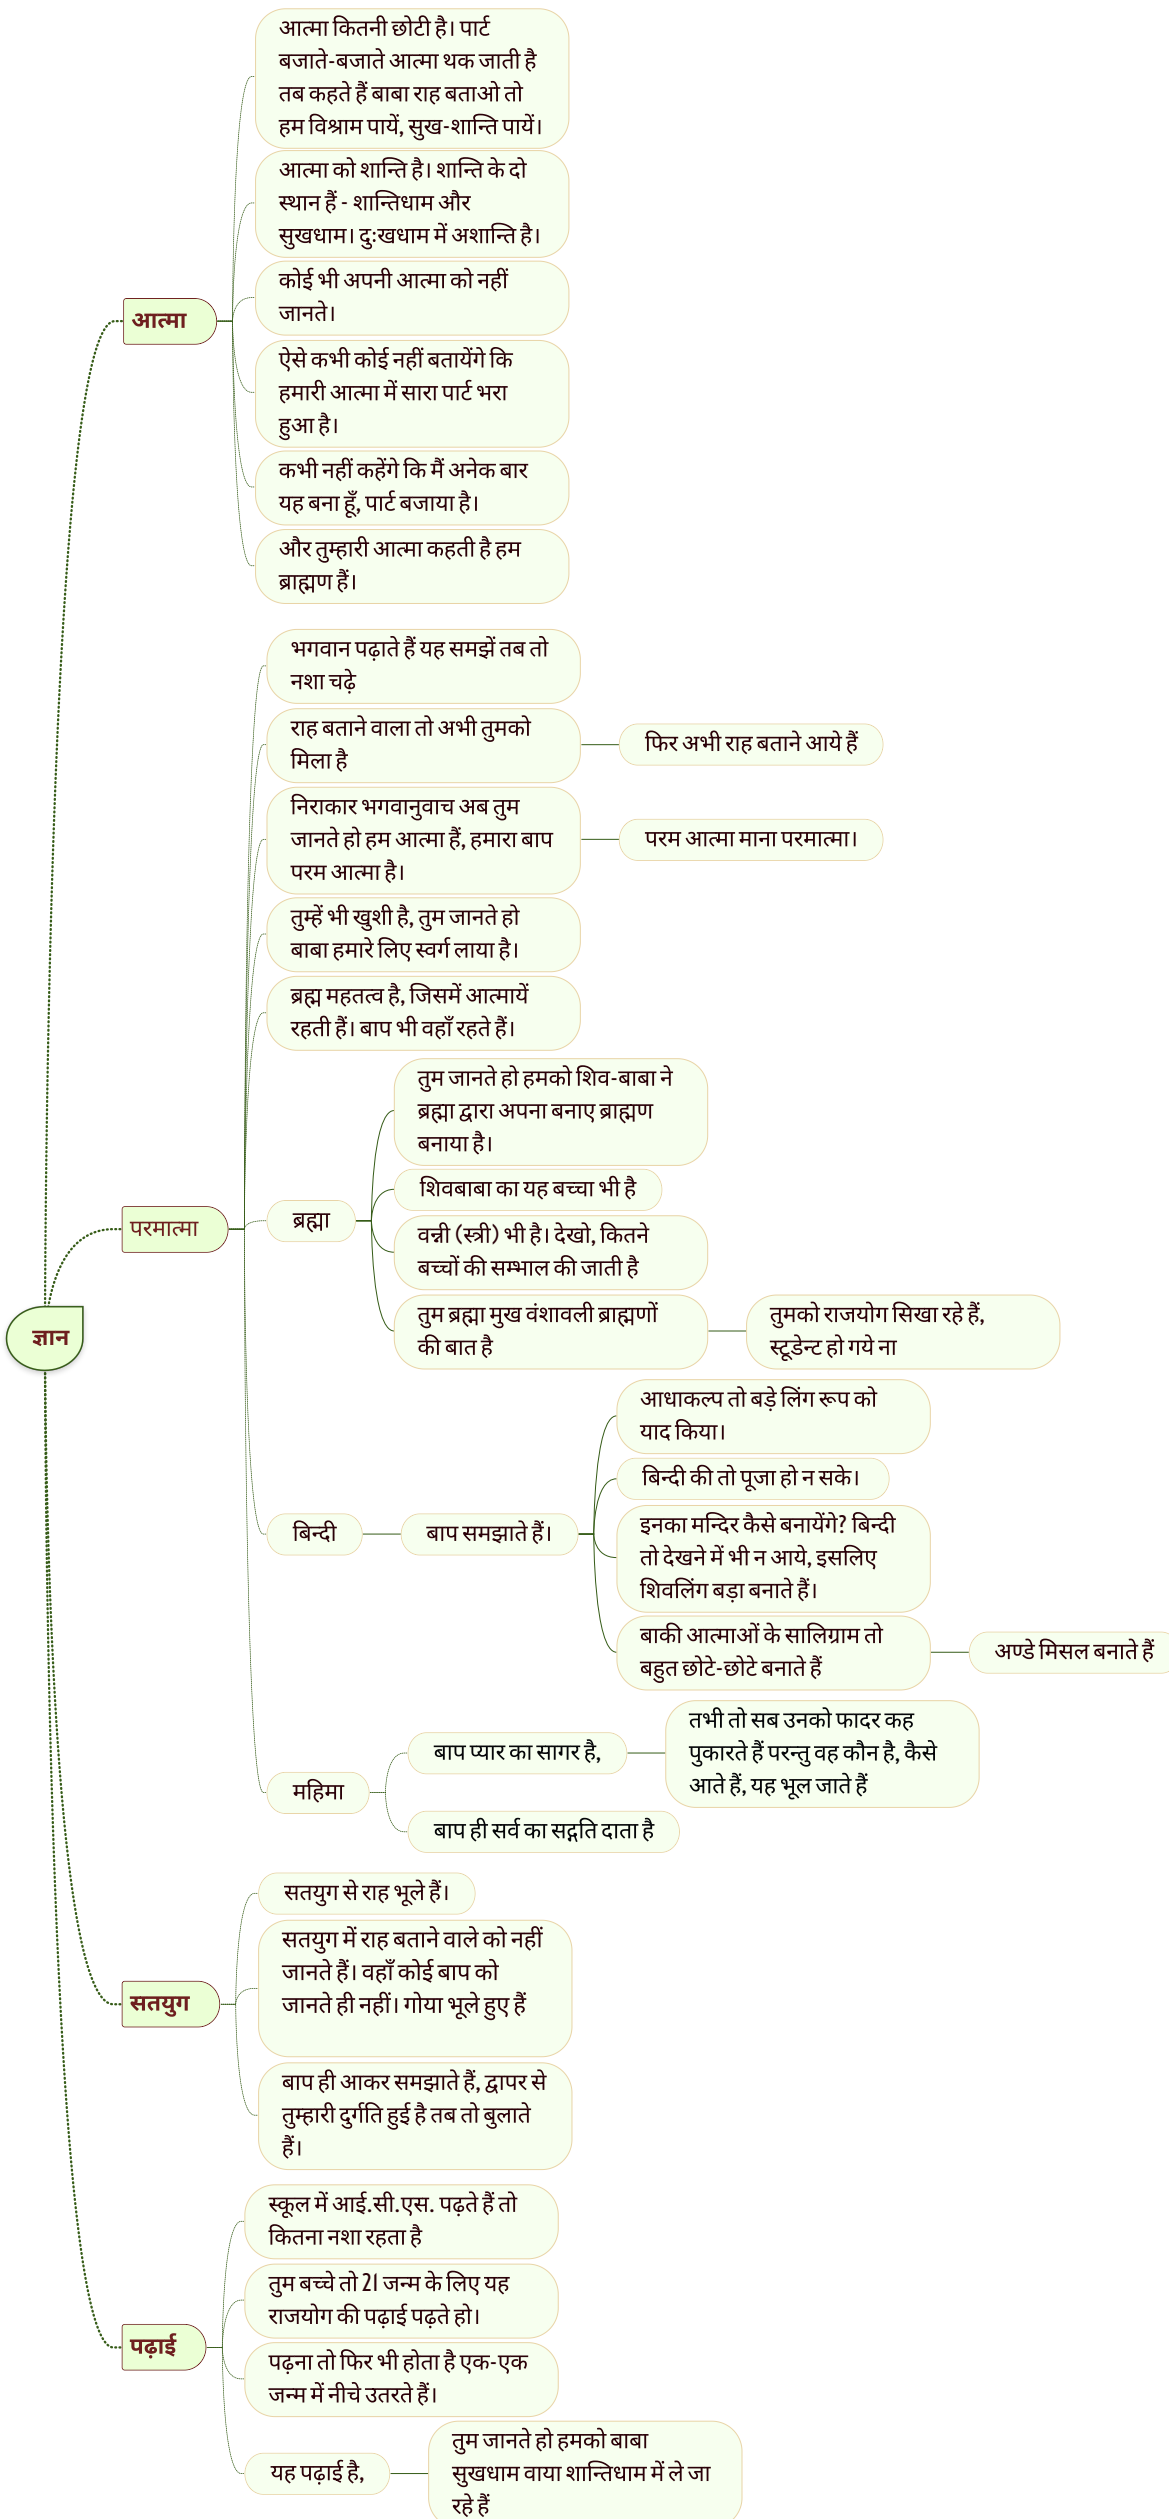 आत्मा कितनी छोटी है। पार्ट
बजाते-बजाते आत्मा थक जाती है
तब कहते हैं बाबा राह बताओ तो
हम विश्राम पायें, सुख-शान्ति पायें।
आत्मा को शान्ति है। शान्ति के दो
स्थान हैं - शान्तिधाम और
सुखधाम। दुःखधाम में अशान्ति है।
कोई भी अपनी आत्मा को नहीं
जानते।
आत्मा
ऐसे कभी कोई नहीं बतायेंगे कि
हमारी आत्मा में सारा पार्ट भरा
हुआ है।
कभी नहीं कहेंगे कि मैं अनेक बार
यह बना हूँ, पार्ट बजाया है।
और तुम्हारी आत्मा कहती है हम
ब्राह्मण हैं।
भगवान पढ़ाते हैं यह समझें तब तो
नशा चढ़े
राह बताने वाला तो अभी तुमको
मिला है
फिर अभी राह बताने आये हैं
निराकार भगवानुवाच अब तुम
जानते हो हम आत्मा हैं, हमारा बाप
परम आत्मा है।
परम आत्मा माना परमात्मा।
तुम्हें भी खुशी है, तुम जानते हो
बाबा हमारे लिए स्वर्ग लाया है।
ब्रह्म महतत्व है, जिसमें आत्मायें
रहती हैं। बाप भी वहाँ रहते हैं।
परमात्मा
ब्रह्मा
तुम जानते हो हमको शिव-बाबा ने
ब्रह्मा द्वारा अपना बनाए ब्राह्मण
बनाया है।
शिवबाबा का यह बच्चा भी है
वन्नी (स्त्री) भी है। देखो, कितने
बच्चों की सम्भाल की जाती है
तुम ब्रह्मा मुख वंशावली ब्राह्मणों
की बात है
तुमको राजयोग सिखा रहे हैं,
स्टूडेन्ट हो गये ना
ज्ञान
बिन्दी
बाप समझाते हैं।
आधाकल्प तो बड़े लिंग रूप को
याद किया।
बिन्दी की तो पूजा हो न सके।
इनका मन्दिर कैसे बनायेंगे? बिन्दी
तो देखने में भी न आये, इसलिए
शिवलिंग बड़ा बनाते हैं।
बाकी आत्माओं के सालिग्राम तो
बहुत छोटे-छोटे बनाते हैं
अण्डे मिसल बनाते हैं
महिमा
बाप प्यार का सागर है,
तभी तो सब उनको फादर कह
पुकारते हैं परन्तु वह कौन है, कैसे
आते हैं, यह भूल जाते हैं
बाप ही सर्व का सद्गति दाता है
सतयुग से राह भूले हैं।
सतयुग में राह बताने वाले को नहीं
जानते हैं। वहाँ कोई बाप को
जानते ही नहीं। गोया भूले हुए हैं
सतयुग
बाप ही आकर समझाते हैं, द्वापर से
तुम्हारी दुर्गति हुई है तब तो बुलाते
हैं।
स्कूल में आई.सी.एस. पढ़ते हैं तो
कितना नशा रहता है
तुम बच्चे तो 21 जन्म के लिए यह
राजयोग की पढ़ाई पढ़ते हो।
पढ़ाई
पढ़ना तो फिर भी होता है एक-एक
जन्म में नीचे उतरते हैं।
यह पढ़ाई है,
तुम जानते हो हमको बाबा
सुखधाम वाया शान्तिधाम में ले जा
रहे हैं